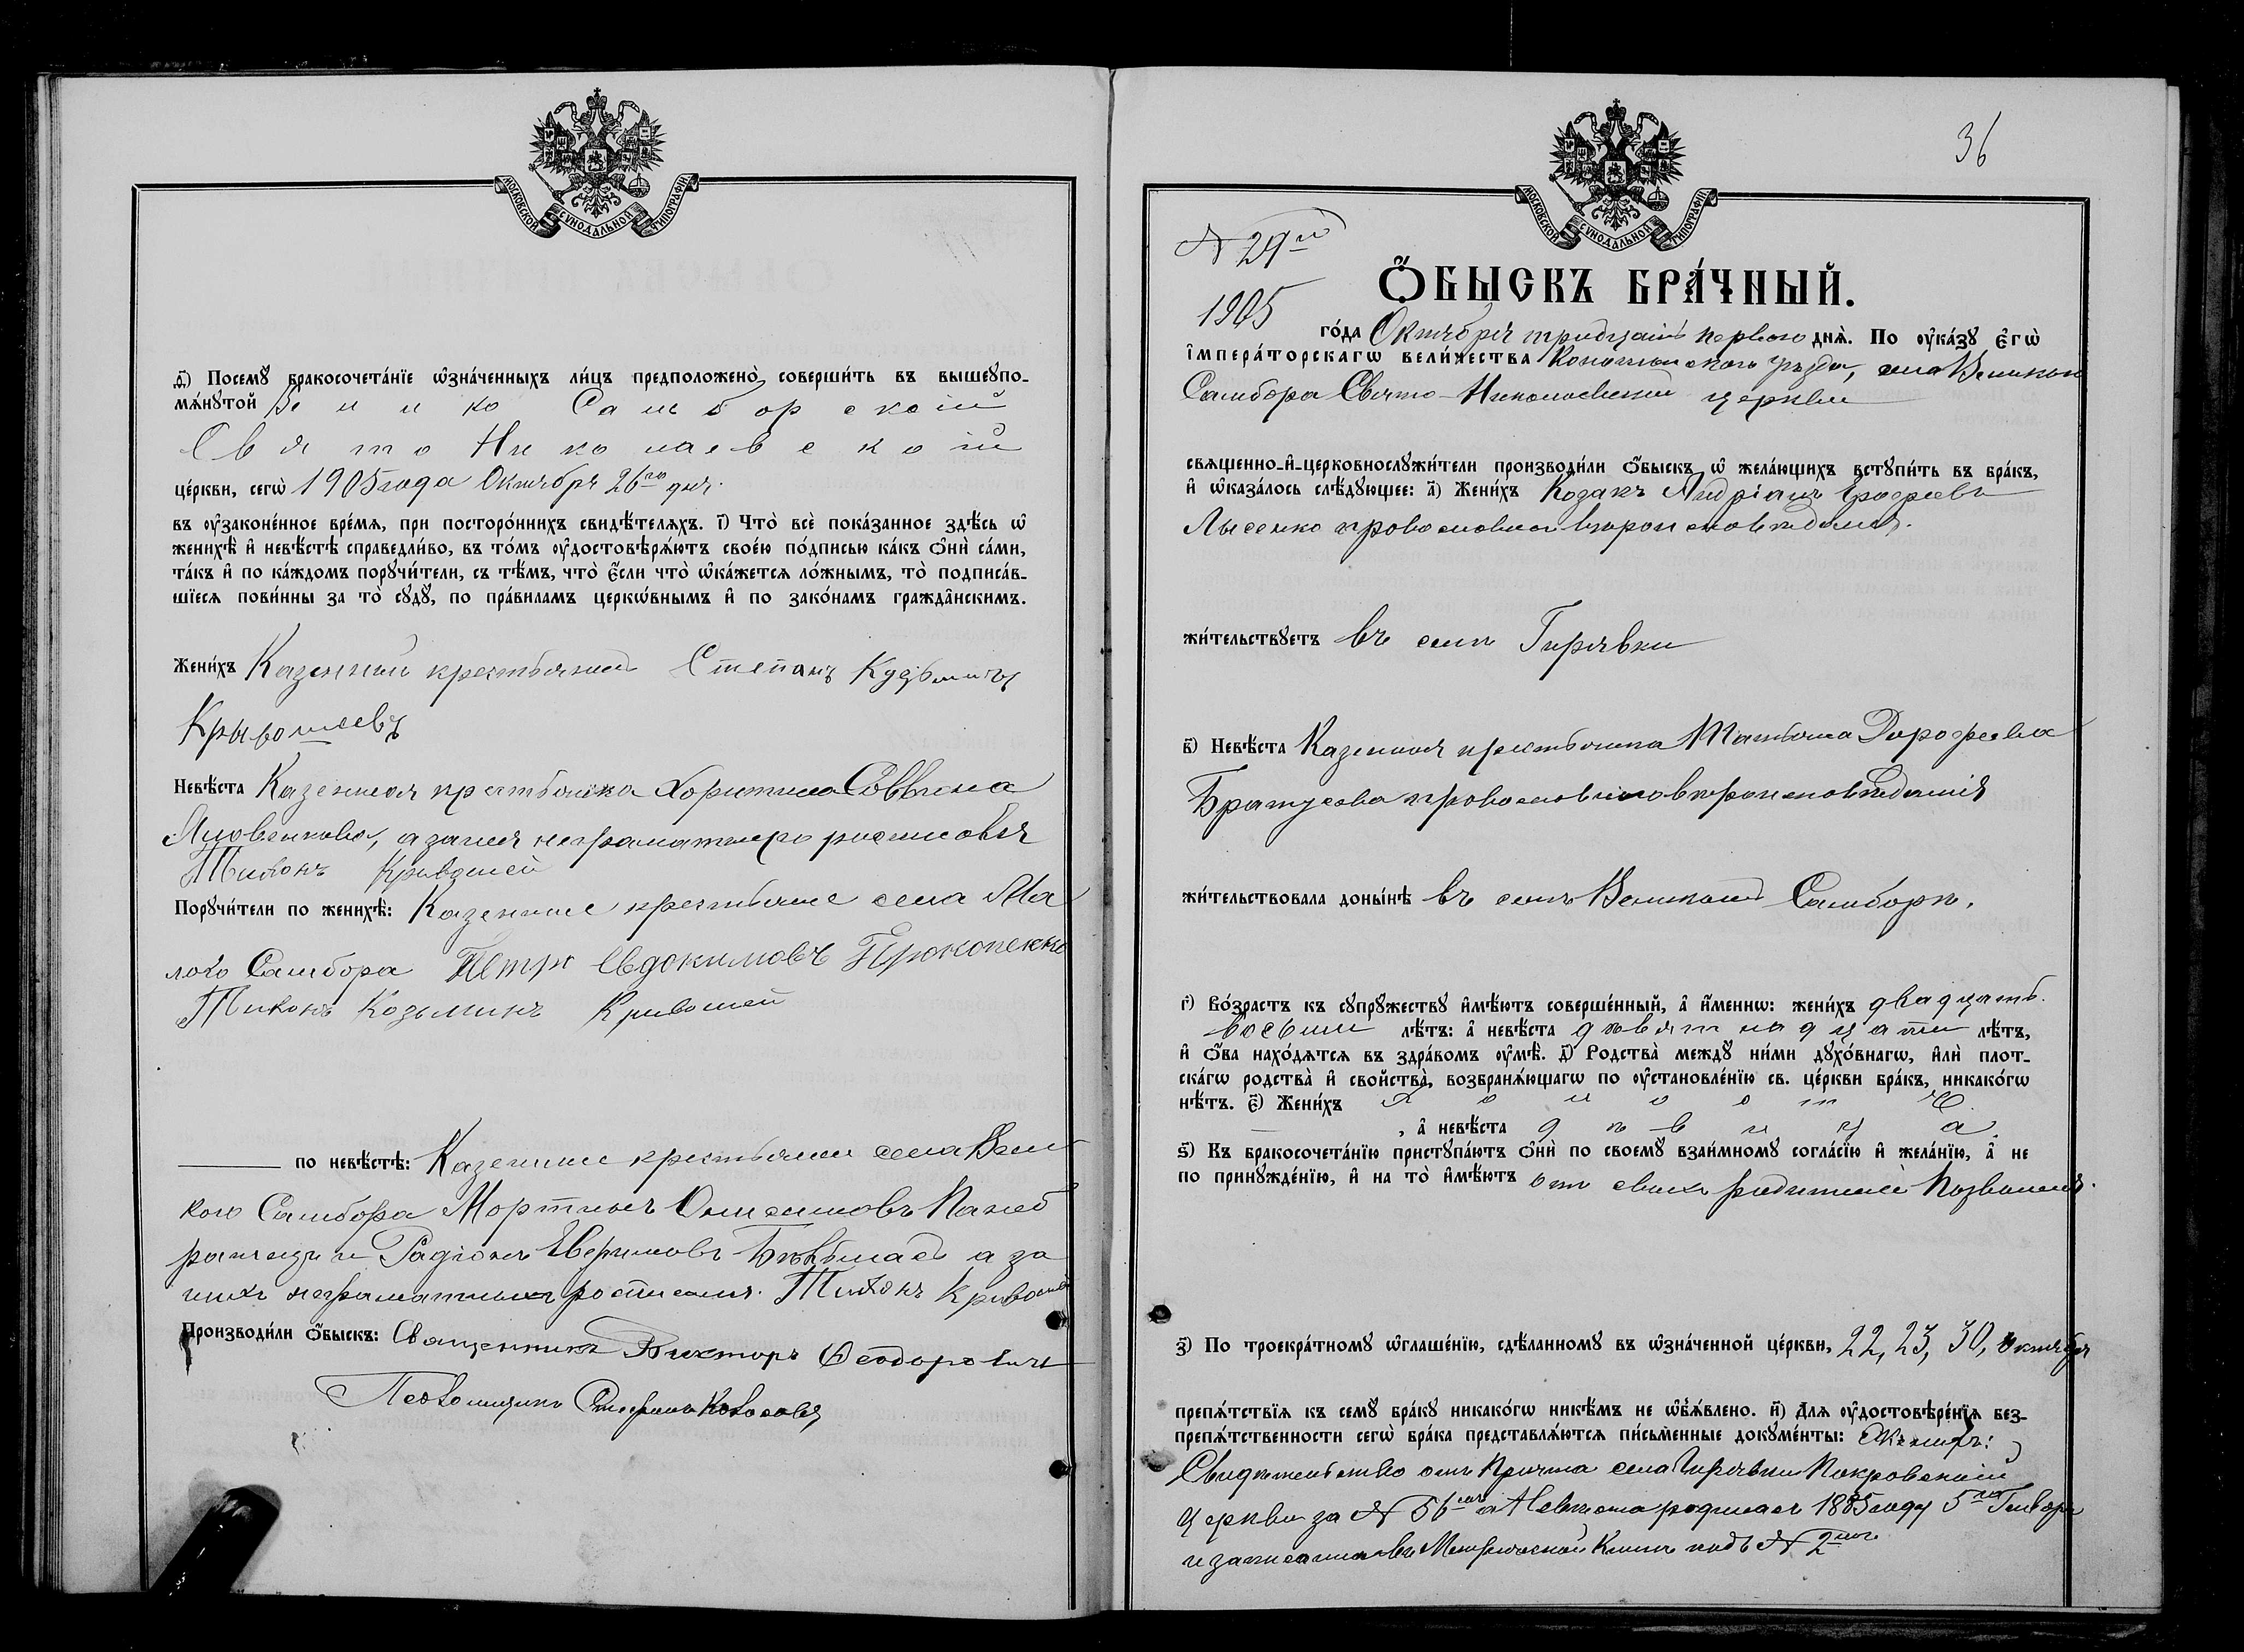 МОСКОВСКОЙ СѴНОДАЛЬНОЙ ТИПОГРАФІИ
ѳ҃) Посемꙋ̀ бракосочета́нїе ѡ҆зна́ченныхъ ли́цъ предположено̀ соверши́ть въ вышеꙋпо-
мѧ́нꙋтой Велико Самборской
Свято Николаевской
це́ркви, сегѡ̀ 1905 года Октября 26го дня.
въ ᲂу҆зако́ненное вре́мѧ, при посторо́ннихъ свидѣ́телѧхъ. і҃) Что̀ всѐ пока́занное здѣ́сь ѡ҆
женихѣ̀ и҆ невѣ́стѣ справедли́во, въ то́мъ ᲂу҆достовѣрѧ́ютъ свое́ю по́дписью ка́къ ѻ҆нѝ са́ми,
та́къ и҆ по ка́ждомъ порꙋчи́тели, съ тѣ́мъ, что̀ є҆́сли что̀ ѡ҆ка́жетсѧ ло́жнымъ, то̀ подписа́в-
шїесѧ пови́нны за то̀ сꙋдꙋ̀, по пра́виламъ церкѡ́внымъ и҆ по зако́намъ гражда̑нскимъ.
Жени́хъ Казенный крестьянинъ Степанъ Кузьмичъ
Крывошеевъ
Невѣ́ста Казенная крестьянка Харитина Саввина
Яковенкова, а за нея неграмотную росписовся
Тихонъ Кривошей
Порꙋчи́тели по женихѣ̀: Казенные крестьяне села Ма
лого Самбора Петръ Евдокимовъ Прокопенко
Тихонъ Козьминъ Кривошей
по невѣ́стѣ: Казенные крестьяне села Вели
кого Самбора Мартынъ Онисимовъ
и Радіонъ а за
нихъ неграмотныхъ росписался Тихонъ Кривошей
Производи́ли ѻ҆́быскъ: Священникъ Викторъ Ѳеодоровичъ
Псаломщикъ Стефанъ
36
МОСКОВСКОЙ СѴНОДАЛЬНОЙ ТИПОГРАФІИ
№ 29й
Ѻ҆́БЫСКЪ БРА́ЧНЫЙ.
1905 го́да Октября тридцать первого днѧ̀. По ᲂу҆ка́зꙋ Є҆гѡ̀
І҆мпера́торскагѡ вели́чества Конотопского уѣзда, села Великого
Самбора Свято-Николаевской церкви
свѧще́нно-и҆-церковнослꙋжи́тели производи́ли ѻ҆́быскъ ѡ҆ жела́ющихъ встꙋпи́ть въ бра́къ,
и҆ ѡ҆каза́лось слѣ́дꙋющее: а҃) Жени́хъ Козакъ Андріанъ
Лысенко православного вѣроисповѣданія.
жи́тельствꙋетъ въ селѣ Гирявки
в҃) Невѣ́ста Казенная крестьянка Татьяна Дорофеева
Братусева православного вѣроисповѣданія
жи́тельствовала доны́нѣ въ селѣ Великомъ Самборѣ.
г҃) Во́зрастъ къ сꙋпрꙋ́жествꙋ и҆мѣ́ютъ соверше́нный, а҆ и҆́меннѡ: жени́хъ двадцать.
восьми лѣ́тъ: а҆ невѣ́ста девятнадцати лѣ́тъ,
и҆ ѻ҆́ба нахо́дѧтсѧ въ здра́вомъ ᲂу҆мѣ̀. д҃) Родства̀ междꙋ̀ ни́ми дꙋхо́внагѡ, и҆лѝ плот-
ска́гѡ родства̀ и҆ сво́йства̀, возбранѧ́ющагѡ по ᲂу҆становле́нїю св. це́ркви бра́къ, никако́гѡ
нѣ́тъ. є҃) Жени́хъ холостъ
, а҆ невѣ́ста дѣвица.
ѕ҃) Къ бракосочета́нїю пристꙋпа́ютъ ѻ҆нѝ по своемꙋ̀ взаи́мномꙋ согла́сїю и҆ жела́нїю, а҆ не
по принꙋжде́нїю, и҆ на то̀ и҆мѣ́ютъ отъ своихъ родителей позволеніе.
з҃) По троекра́тномꙋ ѡ҆глаше́нїю, сдѣ́ланномꙋ въ ѡ҆зна́ченной це́ркви, 22, 23, 30, октября
препѧ́тствїѧ къ семꙋ̀ бра́кꙋ никако́гѡ никѣ́мъ не ѡ҆б̾ѧ́влено. и҃) Длѧ ᲂу҆достовѣре́нїѧ без-
препѧ́тственности сегѡ̀ бра́ка представлѧ́ютсѧ пи́сьменные докꙋме́нты: Женихъ:
Свидѣтельство отъ Причта села Гирявки Покровской
церкви за № 56 а Невѣста родилась 1885 году 5го Генваря
и записана въ Метрической Книгѣ подъ № 2